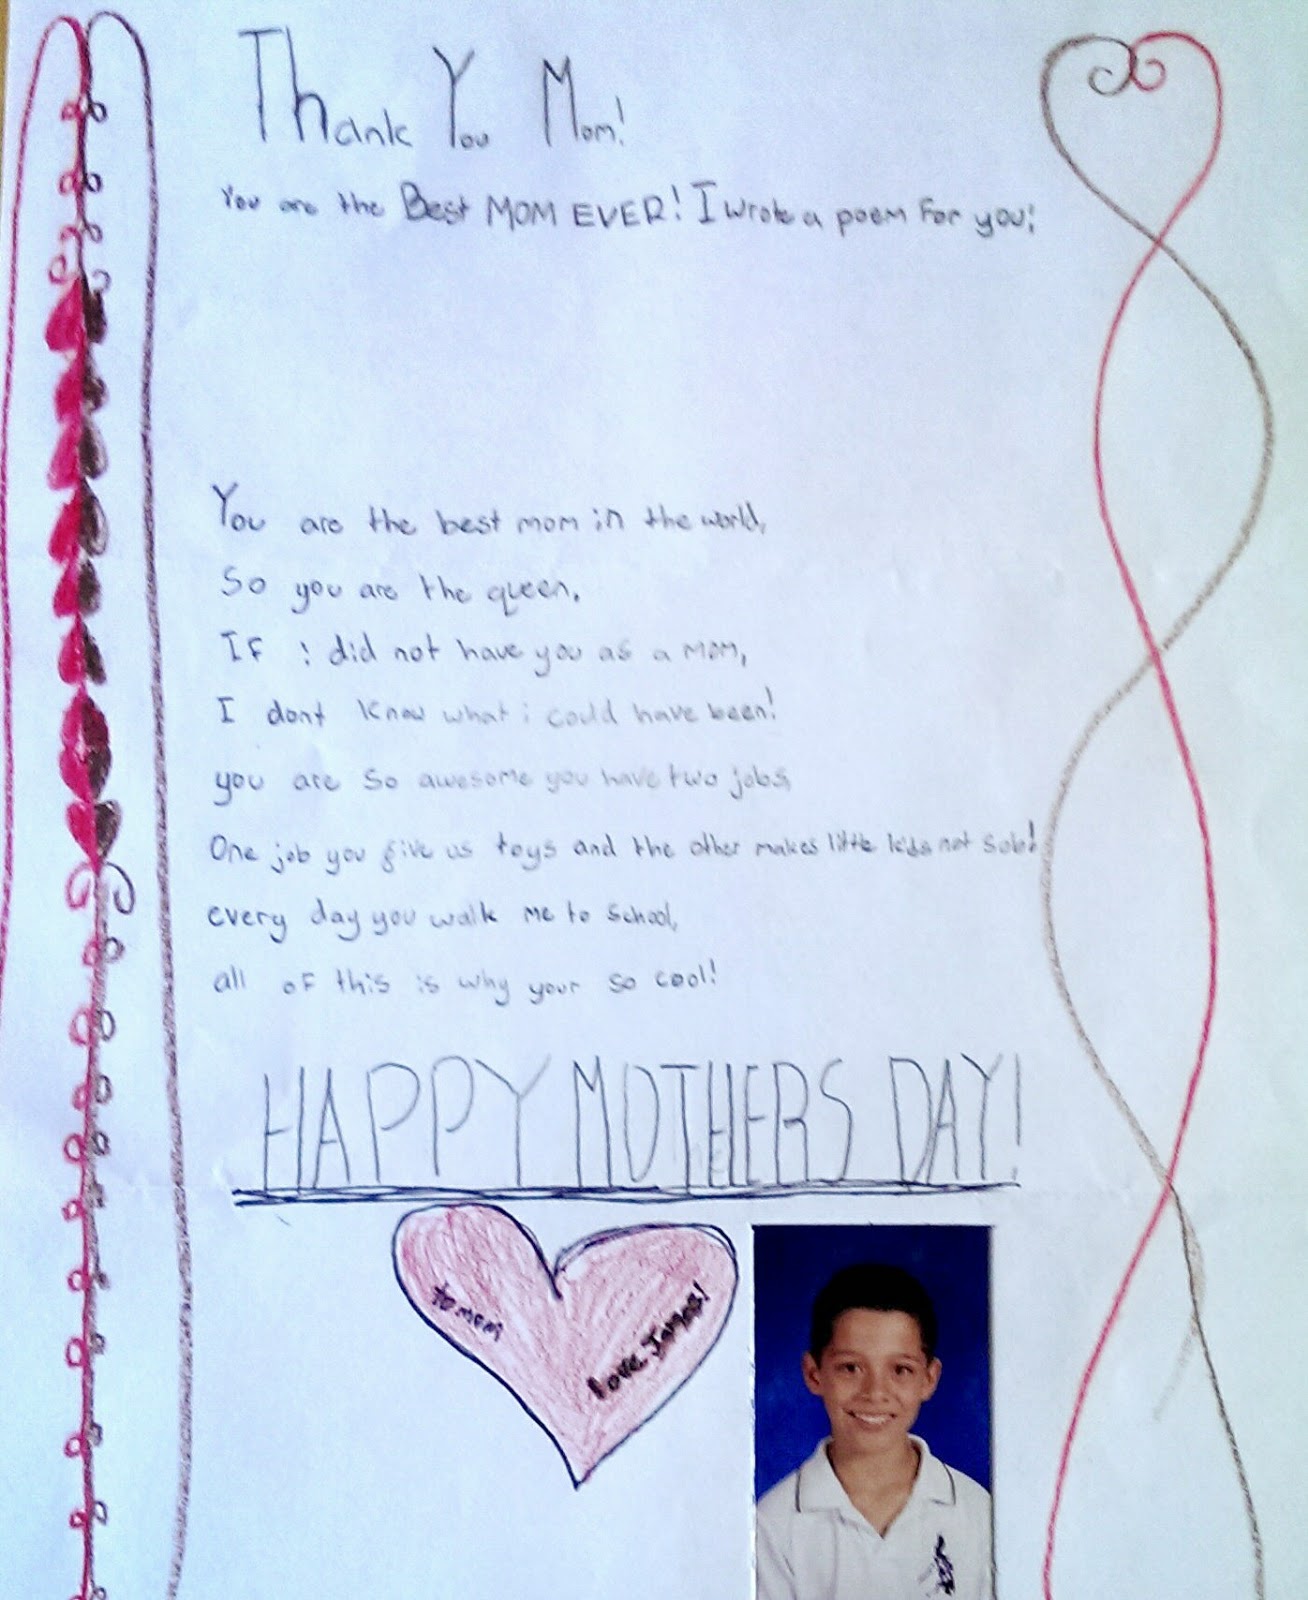 Thank You Mom!
You are the Best MOM EVER! I wrote a poem for you;
You are the best mom in the world,
So you are the queen.
If i did not have you as a mom,
I dont know what i could have been!
you are so awesome you have two jobs,
One job you give us toys and the other makes little kids not sob!
every day you walk me to school,
all of this is why your so cool!
HAPPY MOTHERS DAY!
to mom
love, James!